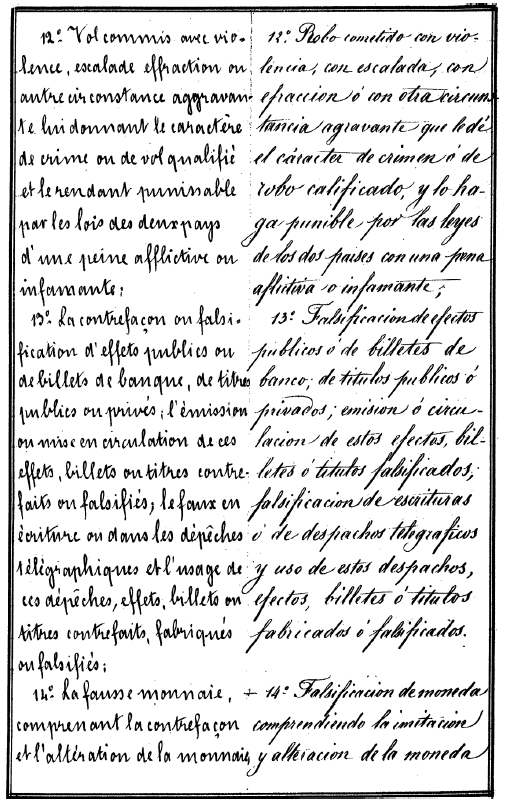 12º Vol commis avec vio-
lence, escalade effraction ou
autre circonstance aggravan-
te lui donnant le caractère
de crime ou de vol qualifié
et le rendant punissable
par les lois des deux pays
d'une peine afflictive ou
infamante;
13º La contrefaçon ou falsi-
fication d'effets publics ou
de billets de banque, de titres
publics ou privés; l'émission
ou mise en circulation de ces
effets, billets ou titres contre-
faits ou falsifiés; le faux en
écriture ou dans les dépêches
télégraphiques et l'usage de
ces dépêches, effets, billets ou
titres contrefaits, fabriqués
ou falsifiés;
14º La fausse monnaie,
comprenant la contrefaçon
et l'altération de la monnaie,
12º Robo cometido con vio-
lencia, con escalada, con
efraccion ó con otra circuns-
tancia agravante que le dé
el cáracter de crimen ó de
robo calificado, y lo ha-
ga punible por las leyes
de los dos paises con una pena
aflictiva o infamante;
13º Falsificacion de efectos
publicos ó de billetes de
banco; de titulos publicos ó
privados; emision ó circu-
lacion de estos efectos, bil-
letes ó titulos falsificados;
falsificacion de escrituras
ó de despachos telegraficos
y uso de estos despachos,
efectos, billetes ó titulos
fabricados ó falsificados.
14º Falsificacion de moneda
comprendiendo la imitacion
y alteracion de la moneda